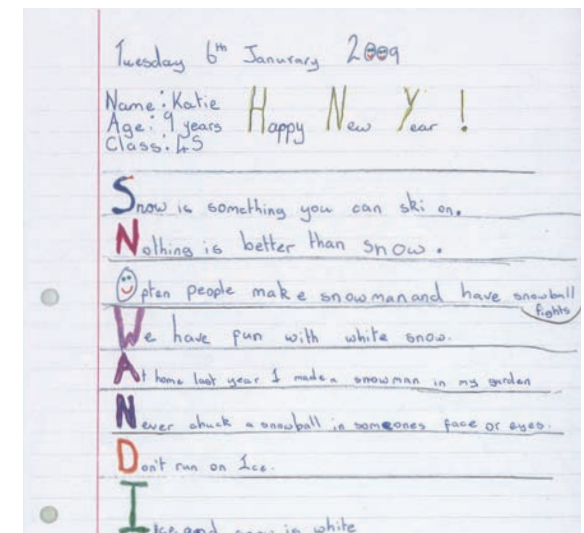 Tuesday 6th Janurary 2009
Name: Katie
Age: 9 years
Class: 4S
Happy New Year!
Snow is something you can ski on.
Nothing is better than snow.
Opten people make snowman and have snowball fights
We have fun with white snow.
At home last year I made a snowman in my garden
Never chuck a snowball in someones face or eyes.
Don't run on Ice.
Ice and snow is white